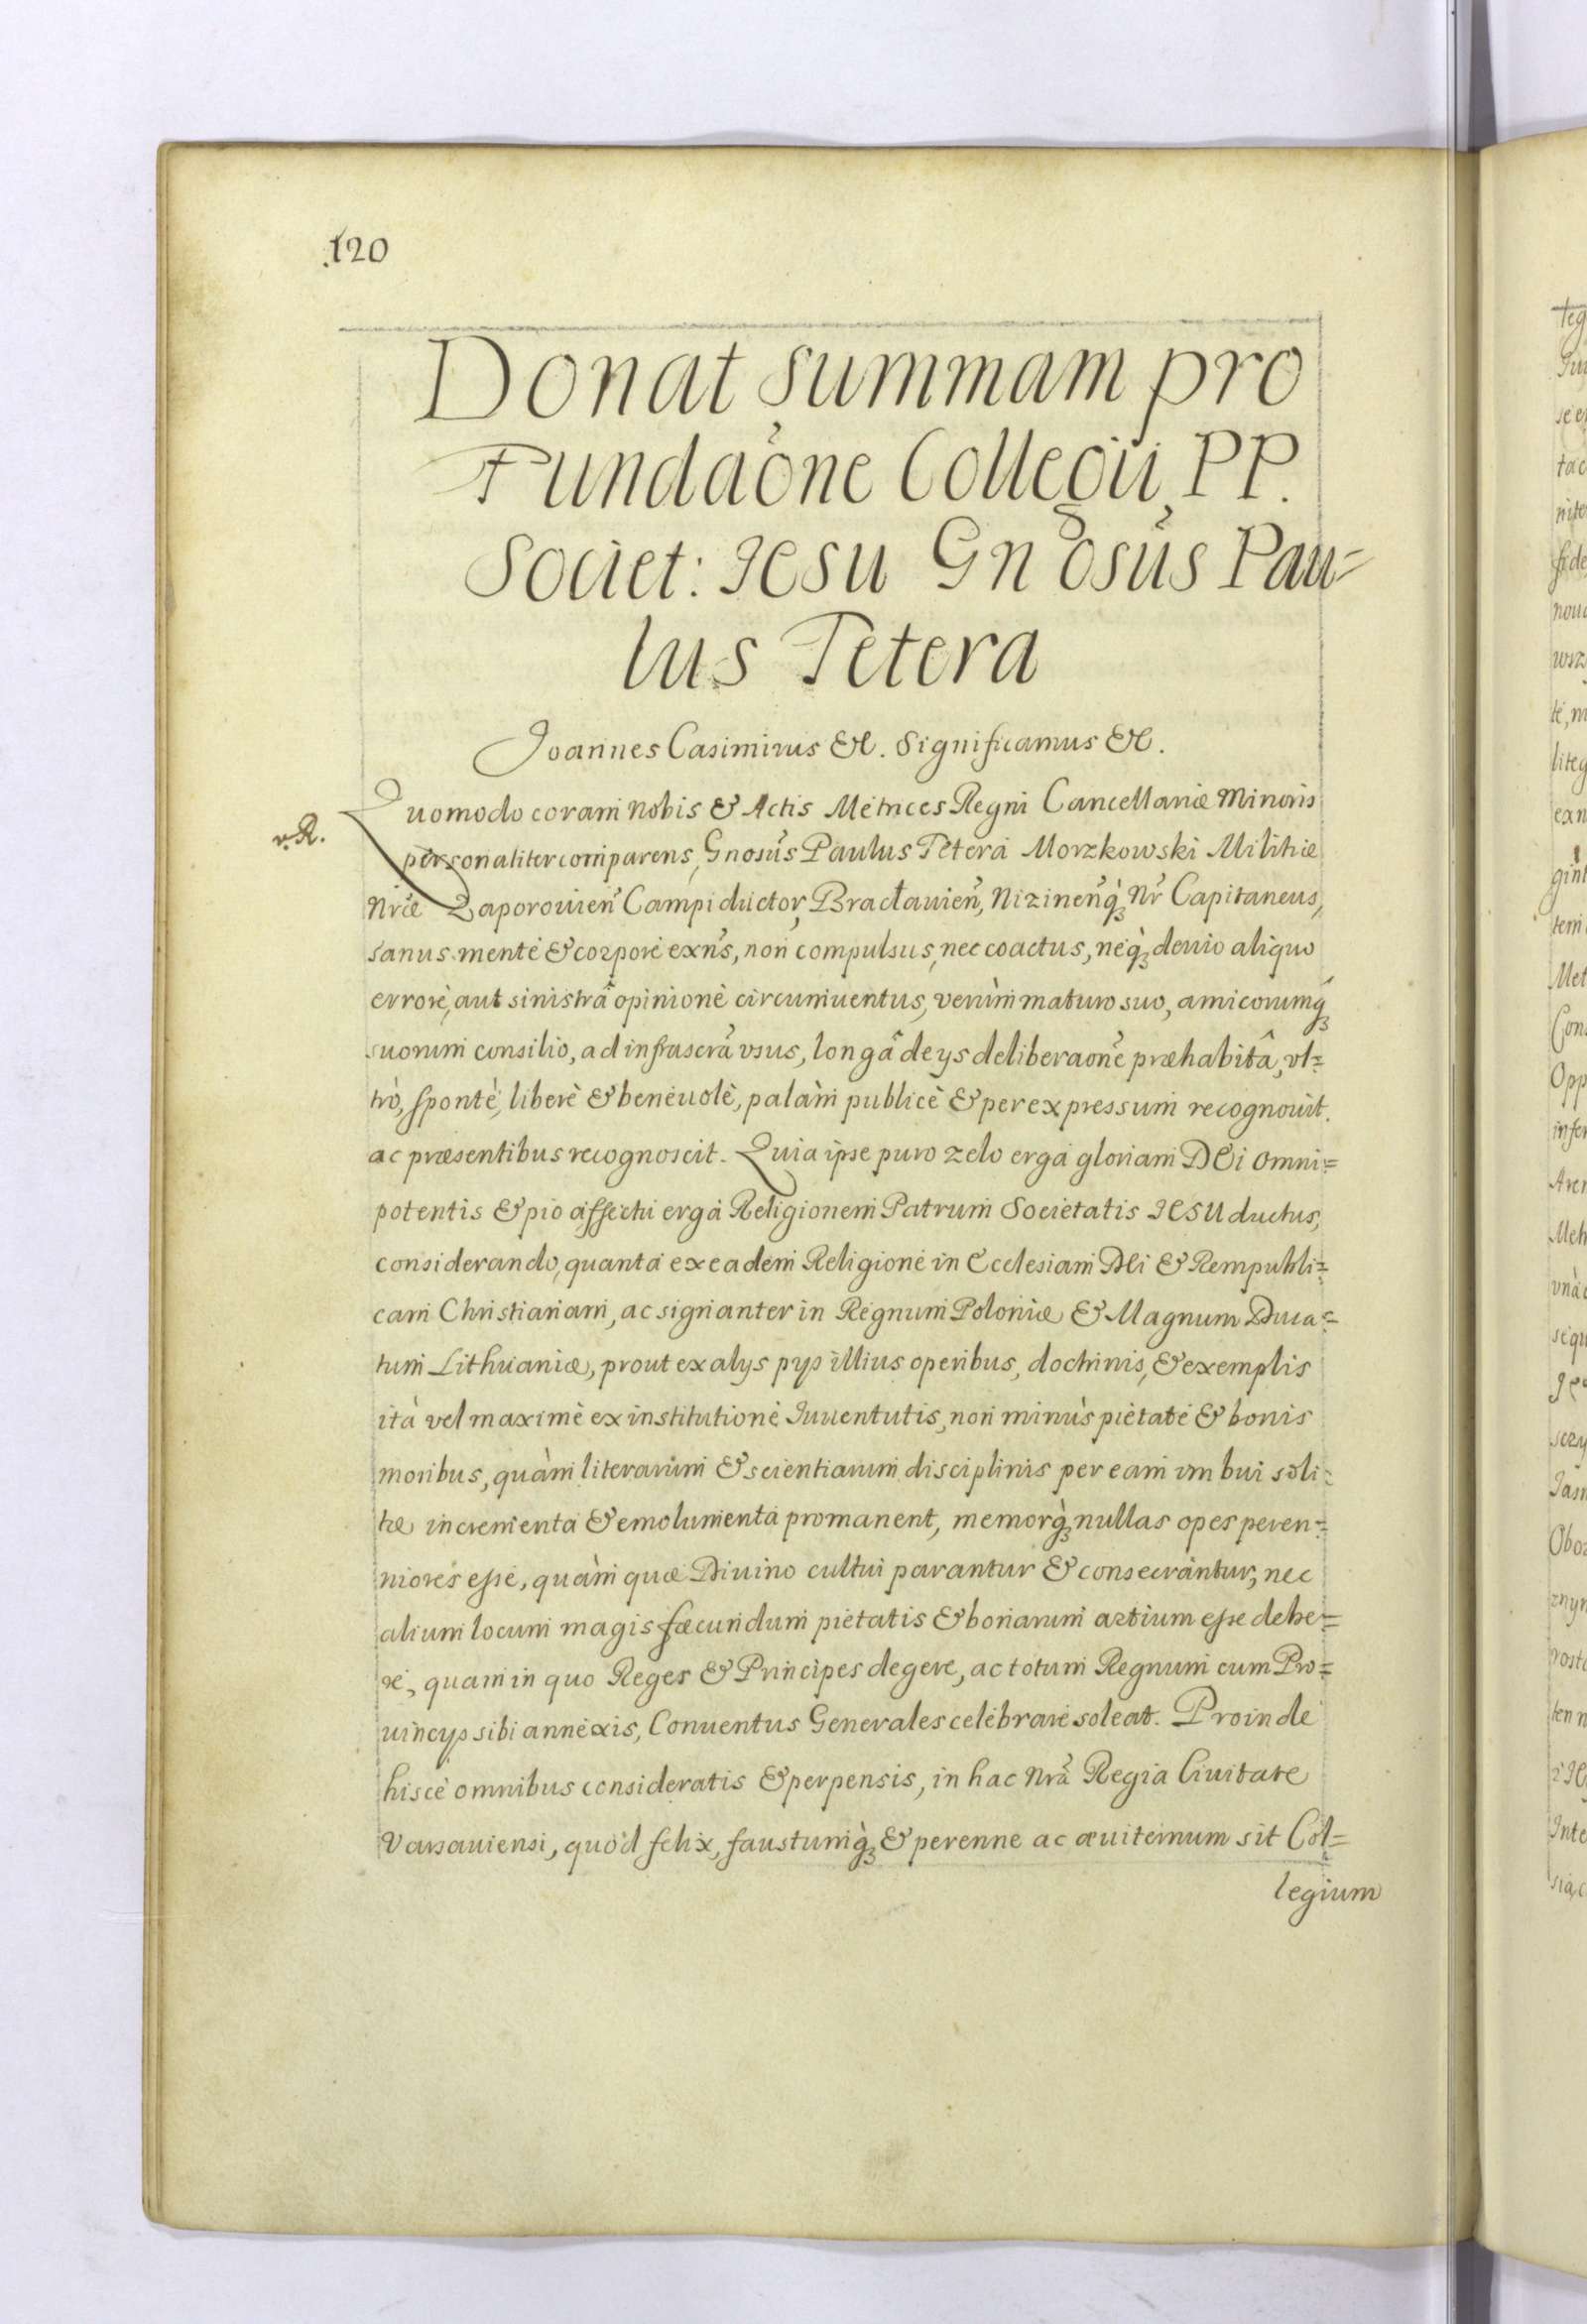 120
Donat summam pro
Fundaõne Collegii PP.
Societ: Jesu Gnosus Pau=
lus Tetera
Joannes Casimirus &c. Significamus &c.
Quomodo coram nobis & Actis Metrices Regni Cancellariæ Minoris
v. R.
personaliter comparens, Gnosus Paulus Tetera Morzkowski Militiæ
Nræ Zaporovien Campi ductor, Bracłavien, Nizinenq̀ꝫ Nr Capitaneus,
sanus mente & corpore exns, non compulsus, nec coactus, neqꝫ devio aliquo
errore, aut sinistrâ opinione circumventus, verùm maturo suo, amicorumqꝫ
suorum consilio, ad infrascra vsus, longâ de ys deliberaone præhabitâ, vl=
trò, sponte, liberè & benevolè, palàm publicè & per expressum recognovit.
ac præsentibus recognoscit. Quia ipse puro zelo erga gloriam DEi omni=
potentis & pio affectu erga Religionem Patrum Societatis JESU ductus,
considerando, quanta ex eadem Religione in Ecclesiam DEi & Rempubli=
cam Christianam, ac signanter in Regnum Poloniæ & Magnum Duca=
tum Lithuaniæ, prout ex alys pys illius operibus, doctrinis, & exemplis
ità vel maximè ex institutione Juventutis, non minùs pietate & bonis
moribus, quàm literarum & scientiarum disciplinis per eam imbui soli=
tæ incrementa & emolumenta promanent, memorq̀ꝫ nullas opes peren=
niores esse, quàm quæ Divino cultui parantur & consecrantur, nec
alium locum magis fœcundum pietatis & bonarum artium esse debe=
re, quam in quo Reges & Principes degere, ac totum Regnum cum Pro=
vincys sibi annexis, Conventus Generales celebrare soleat. Proinde
hisce omnibus consideratis & perpensis, in hac Nra Regia Civitate
Varsaviensi, quòd felix, faustumq̀ꝫ & perenne ac æviternum sit Col=
legium